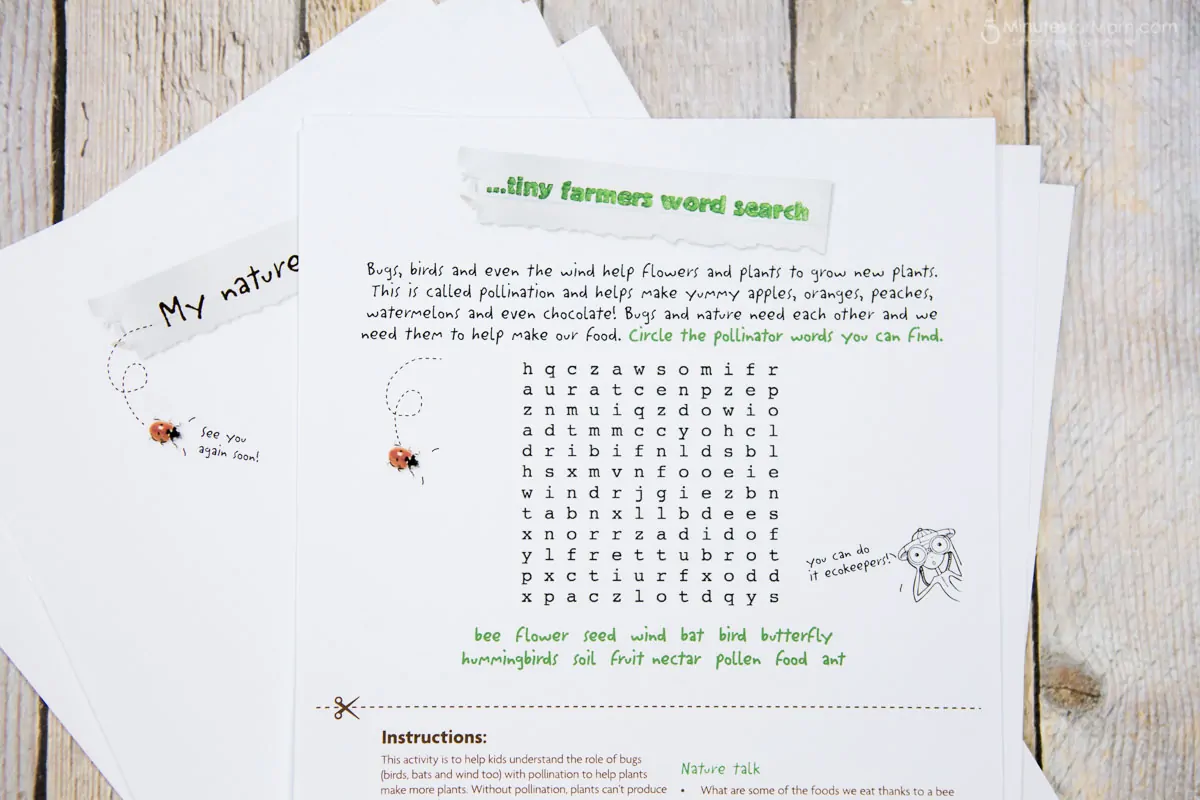 5 Minutes for Mom.com
...tiny farmers word search
Bugs, birds and even the wind help flowers and plants to grow new plants.
This is called pollination and helps make yummy apples, oranges, peaches,
watermelons and even chocolate! Bugs and nature need each other and we
need them to help make our food. Circle the pollinator words you can find.
h q c z a w s o m i f r
a u r a t c e n p z e p
z n m u i q z d o w i o
a d t m m c c y o h c l
d r i b i f n l d s b l
h s x m v n f o o e i e
w i n d r j g i e z b n
t a b n x l l b d e e s
x n o r r z a d i d o f
y l f r e t t u b r o t
p x c t i u r f x o d d
x p a c z l o t d q y s
you can do
it ecokeepers!
bee flower seed wind bat bird butterfly
hummingbirds soil fruit nectar pollen food ant
Instructions:
This activity is to help kids understand the role of bugs
(birds, bats and wind too) with pollination to help plants
make more plants. Without pollination, plants can't produce
Nature talk
• What are some of the foods we eat thanks to a bee
My nature
See you
again soon!